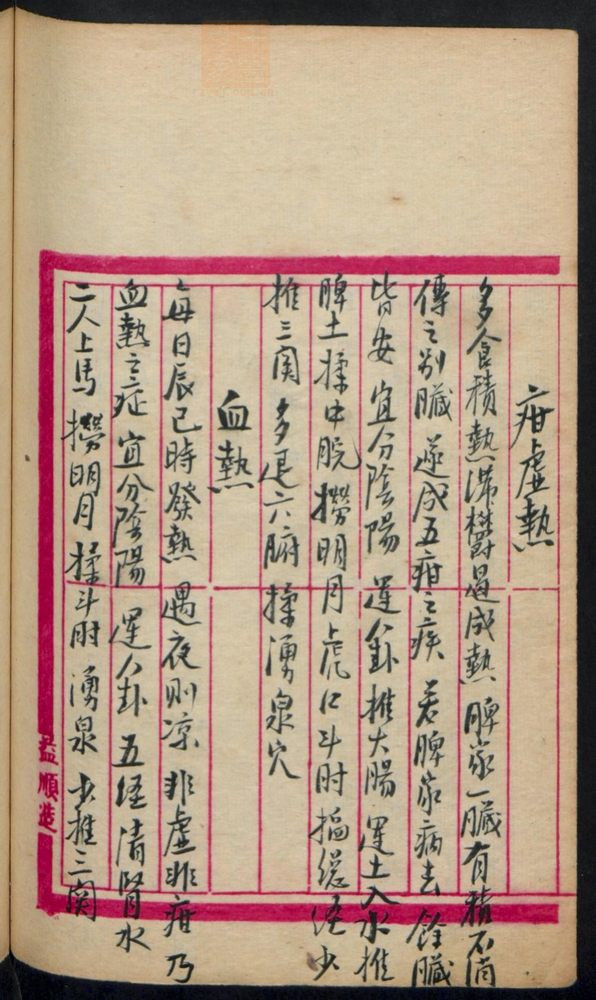 疳虛熱
多食積熱滯欝遏成熱脾家一臟有積不消
傳之別臟遂成五疳之疾若脾家病去餘臟
皆安宜分陰陽運八卦推大腸運土入水推
脾土揉中脘撈明月虎口斗肘掐總經少
推三関多退六腑揉湧泉穴
血熱
每日辰巳時發熱遇夜則凉非虛非疳乃
血熱之症宜分陰陽運八卦五経清腎水
二人上馬撈明月揉斗肘湧泉少推三関
益順造